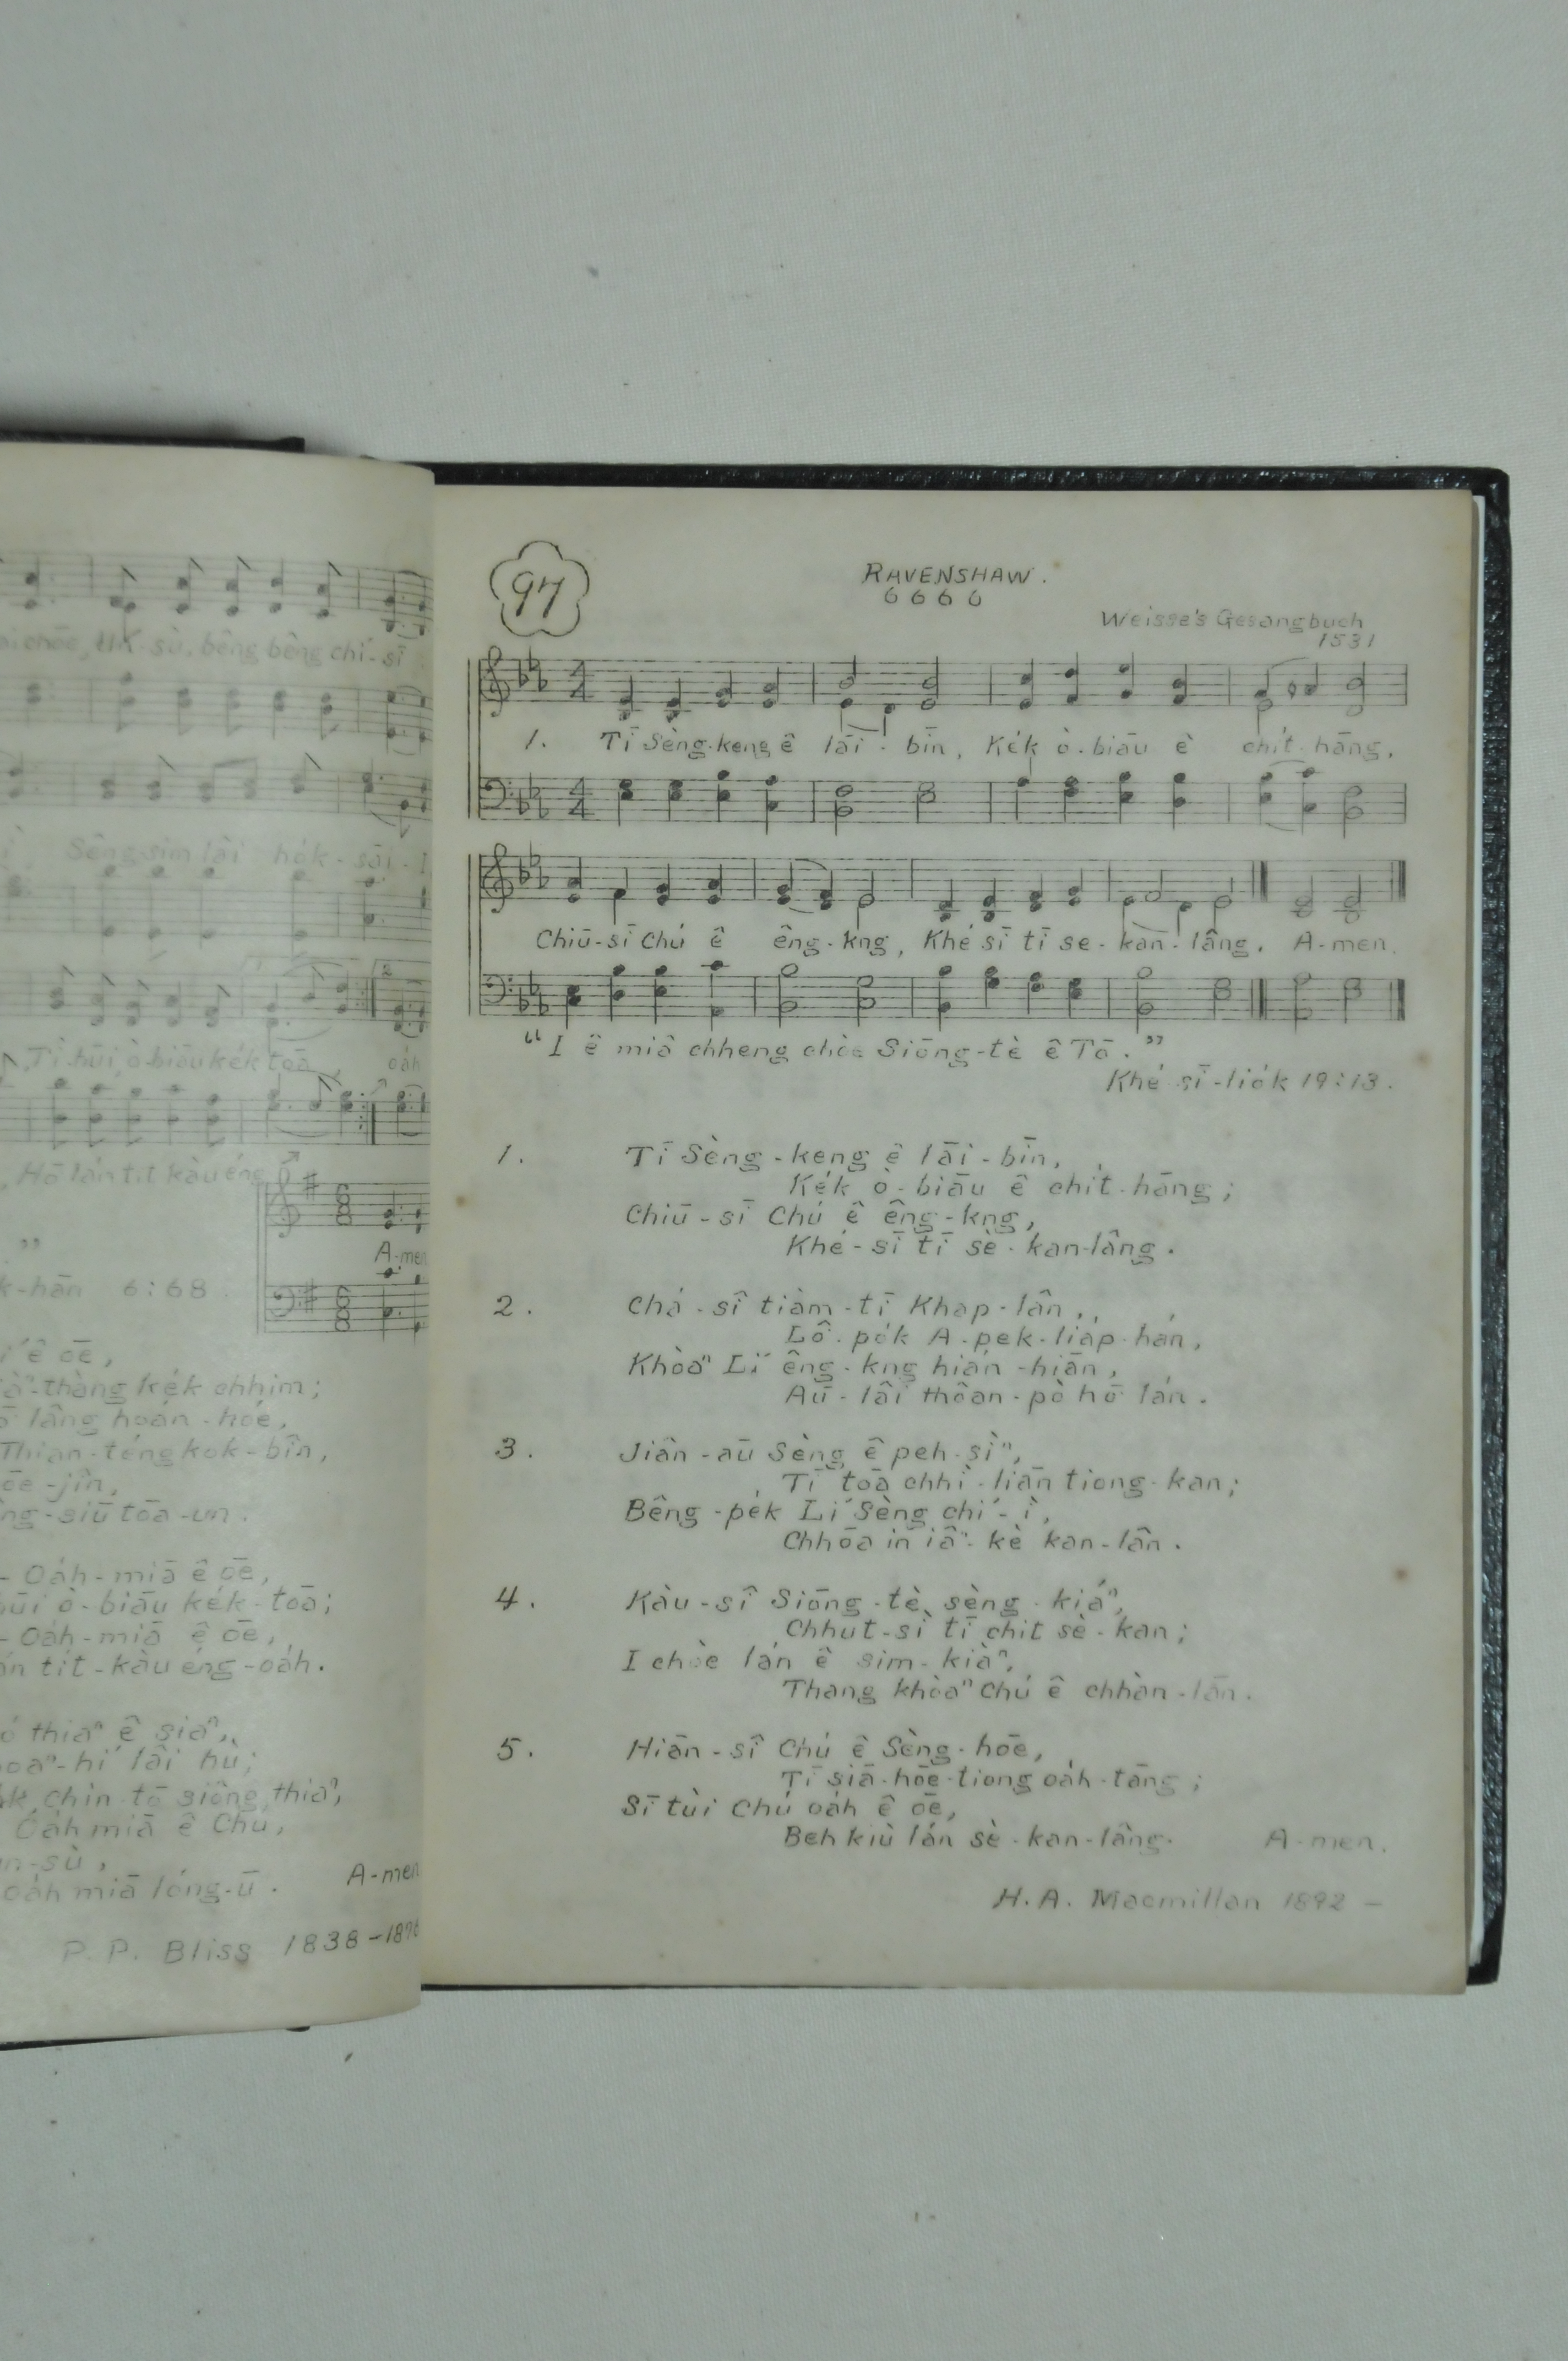 bêng bêng chí-sī
Sêng-sim lâi ho̍k-sāi
ò-biāu ke̍k toā
oa̍h
A-men
6:68
ê ōe,
thàng ke̍k chhim;
lâng hoán-hóe,
Thian-tông kok-bîn,
ōe-jîn,
siū tōa-un.
- Oa̍h-miā ê ōe,
ò-biāu ke̍k-toā;
- Oa̍h-miā ê ōe,
ti̍t-kàu éng-oa̍h.
thiaⁿ ê siaⁿ,
hí lâi hù;
chìn-tō siông thiaⁿ,
Oa̍h miā ê Chú,
Oa̍h miā lóng-ū.
A-men
P. P. Bliss 1838-1876
97
RAVENSHAW.
6 6 6 6
Weisse's Gesangbuch
1531
1. Tī Sèng-keng ê lāi-bīn, Ke̍k ò-biāu ê chi̍t-hāng,
Chiū-sī Chú ê êng-kng, Khé sī tī se-kan-lâng. A-men.
"I ê miâ chheng chòe Siōng-tè ê Tō."
Khé sī-lio̍k 19:13.
1. Tī Sèng-keng ê lāi-bīn,
Ke̍k ò-biāu ê chi̍t-hāng;
Chiū-sī Chú ê êng-kng,
Khé-sī tī sè-kan-lâng.
2. Chá-sî tiàm-tī Khap-lân,
Lô-po̍k A-pek-lia̍p-hán,
Khòaⁿ Lí êng-kng hián-hiān,
Āu-lâi thôan-pò hō͘ lán.
3. Jiân-āu Sèng ê peh-sìⁿ,
Tī toā chhì-liān tiong-kan;
Bêng-pe̍k Lí Sèng chí-ì,
Chhōa in iâⁿ-kè kan-lân.
4. Kàu-sî Siōng-tè sèng-kiáⁿ,
Chhut-sì tī chit sè-kan;
I chòe lán ê sim-kiàⁿ,
Thang khòaⁿ Chú ê chhàn-lān.
5. Hiān-sî Chú ê Sèng-hōe,
Tī siā-hōe-tiong oa̍h-tāng;
Sī tùi Chú oa̍h ê ōe,
Beh kiù lán sè-kan-lâng. A-men.
H. A. Macmillan 1892 -